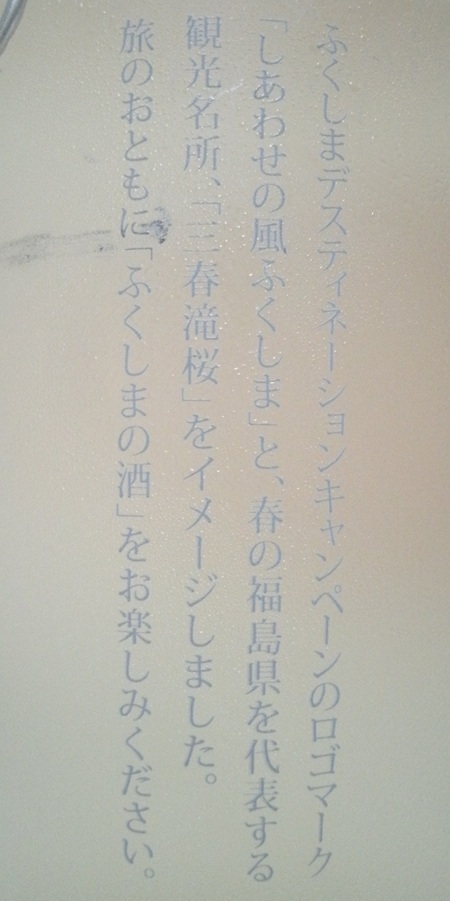 ふくしまデスティネーションキャンペーンのロゴマーク
「しあわせの風ふくしま」と、春の福島県を代表する
観光名所、「三春滝桜」をイメージしました。
旅のおともに「ふくしまの酒」をお楽しみください。